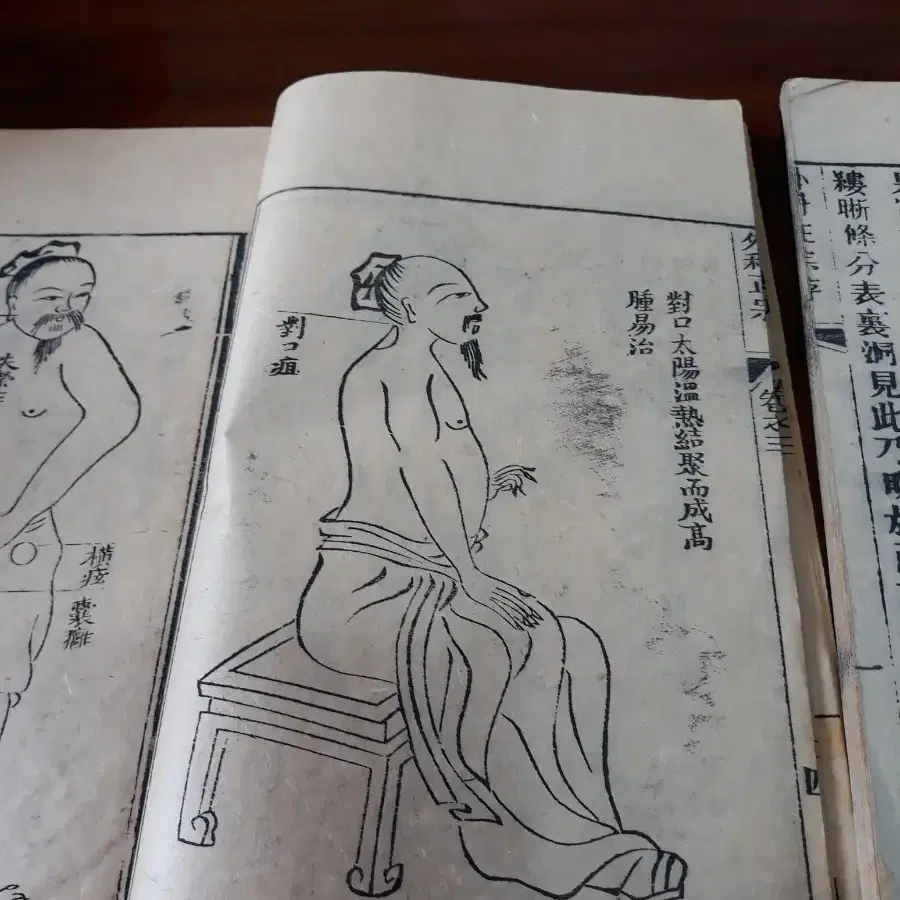 對口太陽溫熱結聚而成高
腫易治
對口疽
外科正宗
卷之三
四
橫痃
囊癰
縷晰條分表裏洞見此乃
一